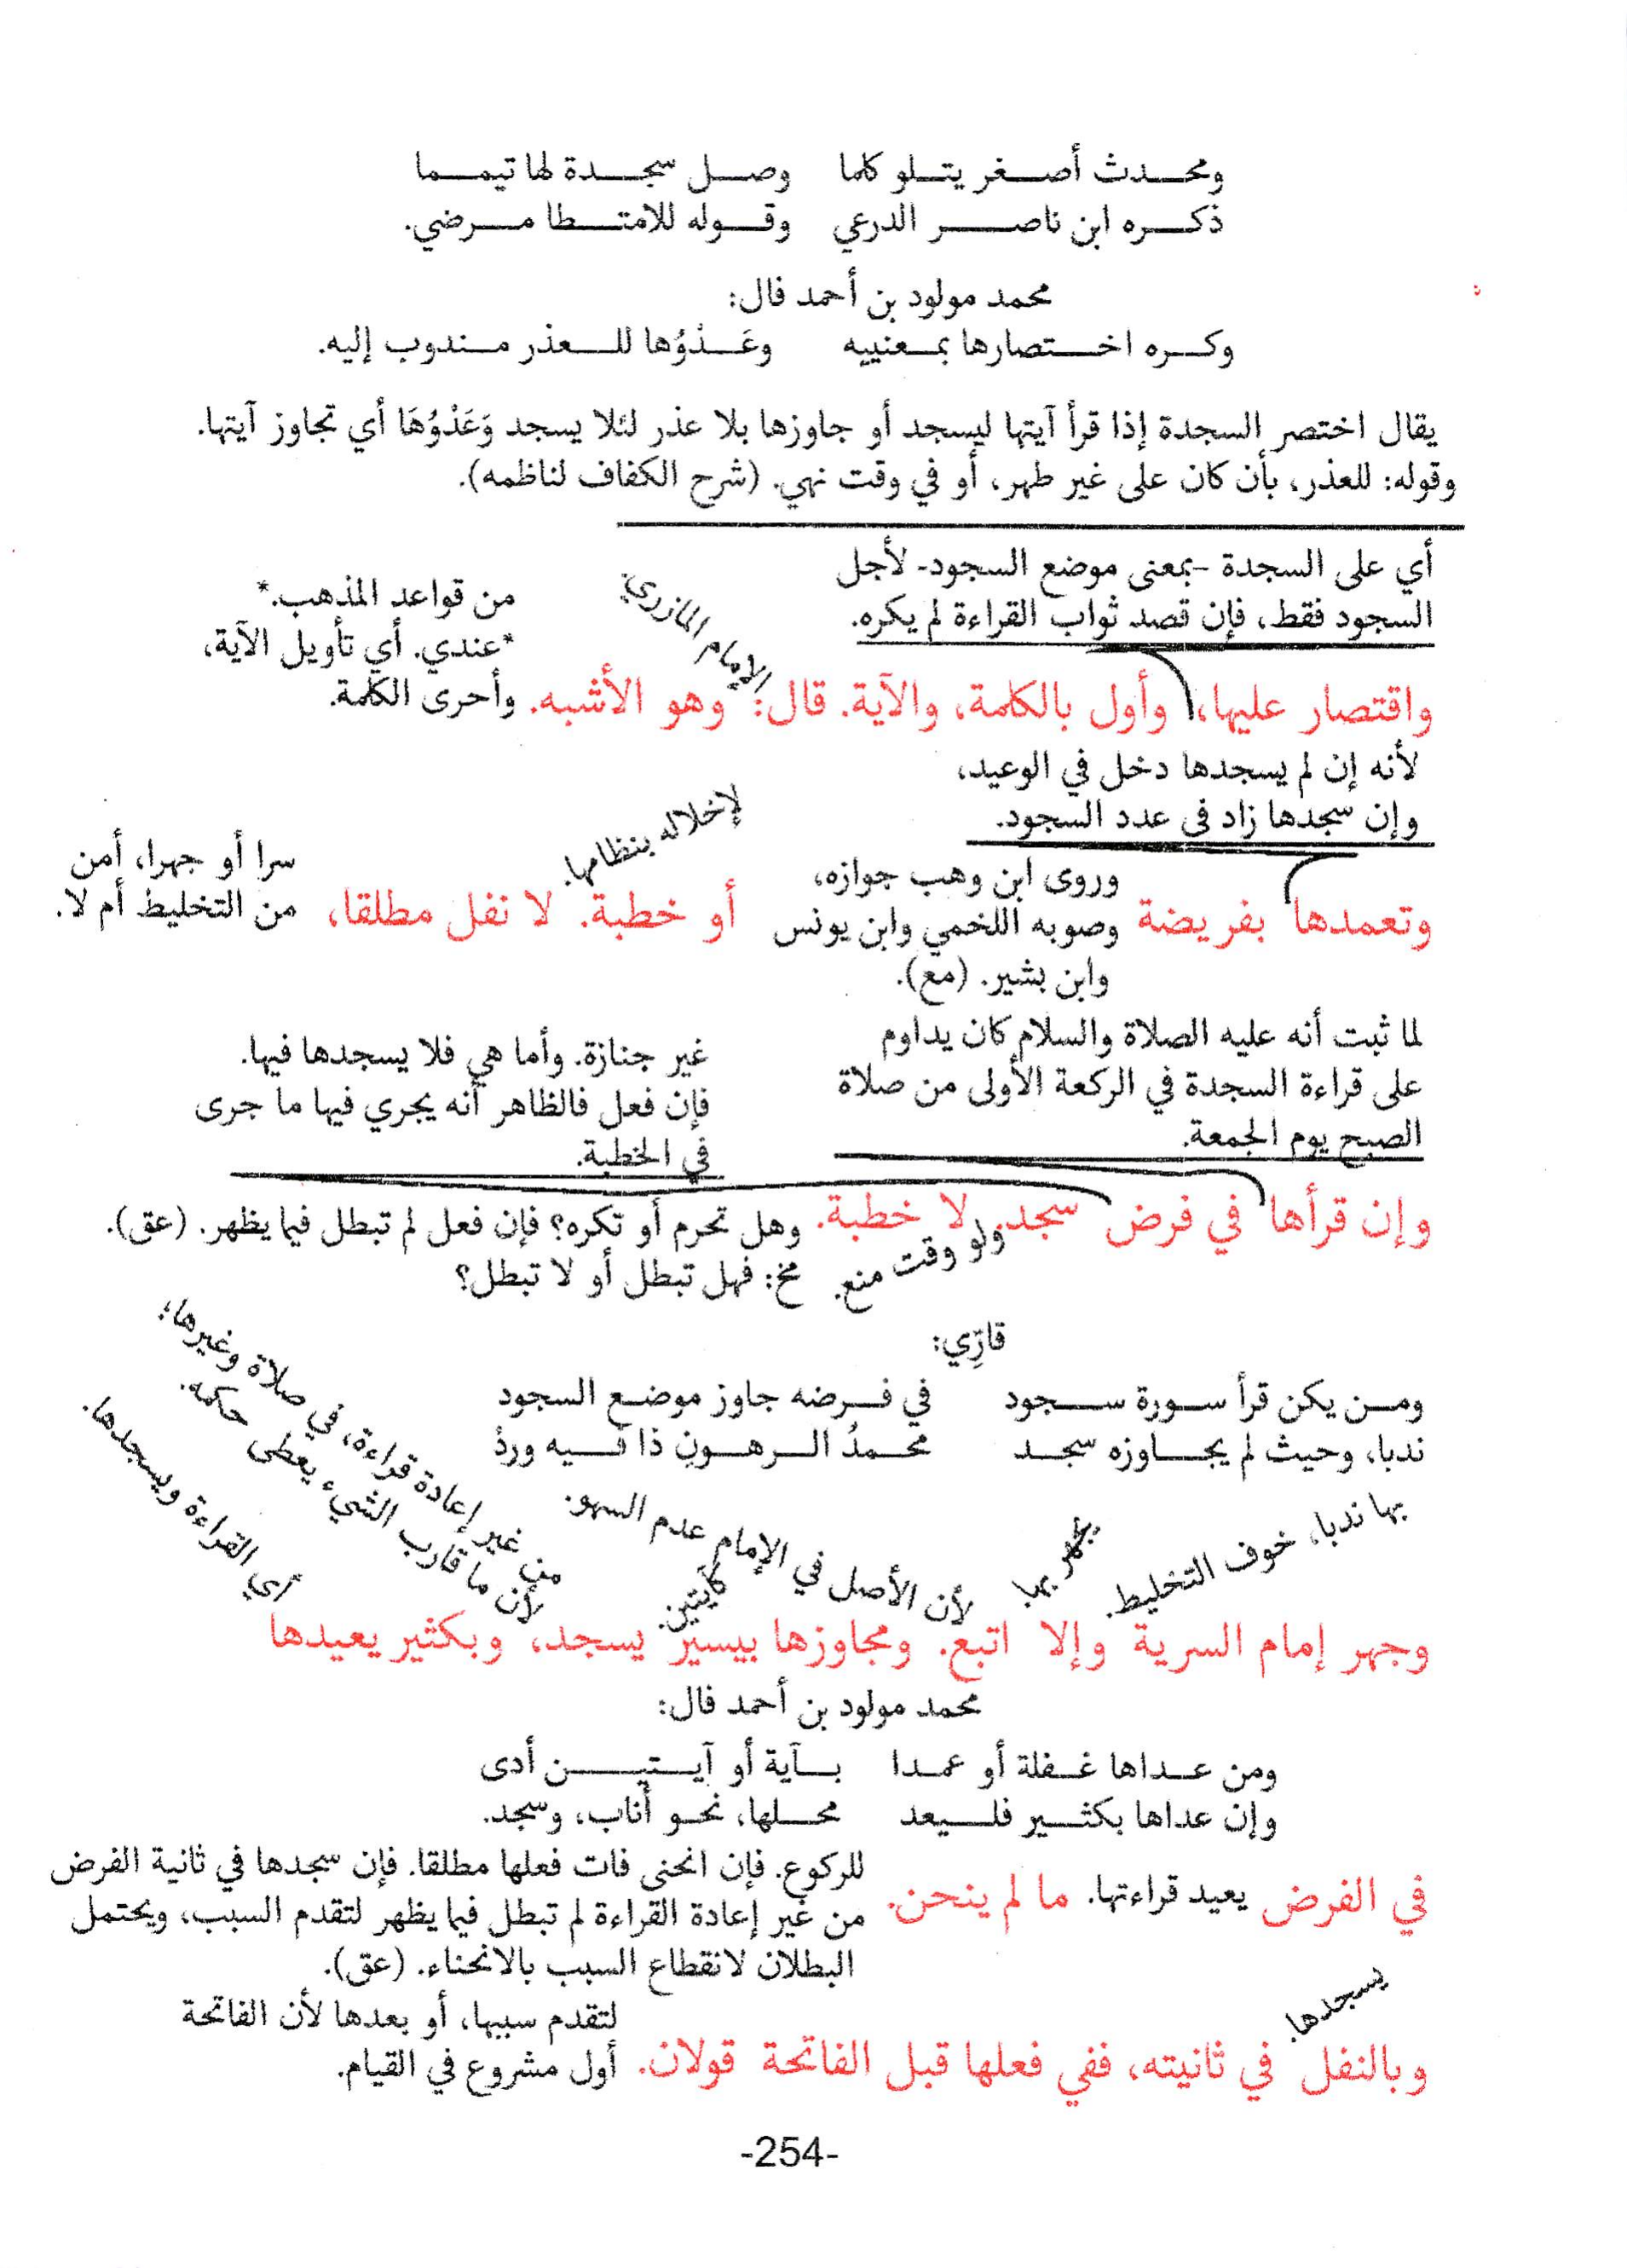 ومحدث أصغر يتلو كلما وصل سجدة لها تيمما
ذكره ابن ناصر الدرعي وقوله للامتطا مرضي.
محمد مولود بن أحمد فال:
وكره اختصارها بمعنييه وعَدْوُها للعذر مندوب إليه.
يقال اختصر السجدة إذا قرأ آيتها ليسجد أو جاوزها بلا عذر لئلا يسجد وَعَدْوُهَا أي تجاوز آيتها.
وقوله: للعذر، بأن كان على غير طهر، أو في وقت نهي. (شرح الكفاف لناظمه).
أي على السجدة -بمعنى موضع السجود- لأجل
السجود فقط، فإن قصد ثواب القراءة لم يكره.
الإمام المازري.
من قواعد المذهب.*
*عندي. أي تأويل الآية،
وأحرى الكلمة.
واقتصار عليها، وأول بالكلمة، والآية. قال: وهو الأشبه.
لأنه إن لم يسجدها دخل في الوعيد،
وإن سجدها زاد في عدد السجود.
لإخلاله بنظامها.
وتعمدها بفريضة أو خطبة. لا نفل مطلقا،
وروى ابن وهب جوازه،
وصوبه اللخمي وابن يونس
وابن بشير. (مع).
سرا أو جهرا، أمن
من التخليط أم لا.
لما ثبت أنه عليه الصلاة والسلام كان يداوم
على قراءة السجدة في الركعة الأولى من صلاة
الصبح يوم الجمعة.
غير جنازة. وأما هي فلا يسجدها فيها.
فإن فعل فالظاهر أنه يجري فيها ما جرى
في الخطبة.
وإن قرأها في فرض سجد. لا خطبة. وهل تحرم أو تكره؟ فإن فعل لم تبطل فيما يظهر. (عق).
ولو وقت منع.
مخ: فهل تبطل أو لا تبطل؟
قارِّي:
ومن يكن قرأ سورة سجود في فرضه جاوز موضع السجود
ندبا، وحيث لم يجاوزه سجد محمدُ الرهون ذا فيه وردْ
بها ندبا، خوف التخليط.
يجهر بها.
لأن الأصل في الإمام عدم السهو.
كآيتين.
من غير إعادة قراءة، في صلاة وغيرها؛
لأن ما قارب الشيء يعطى حكمه.
أي القراءة ويسجدها.
وجهر إمام السرية وإلا اتبع. ومجاوزها بيسير يسجد، وبكثير يعيدها
محمد مولود بن أحمد فال:
ومن عداها غفلة أو عمدا بآية أو آيتين أدى
وإن عداها بكثير فليعد محلها، نحو أناب، وسجد.
في الفرض يعيد قراءتها. ما لم ينحن.
للركوع. فإن انحنى فات فعلها مطلقا. فإن سجدها في ثانية الفرض
من غير إعادة القراءة لم تبطل فيما يظهر لتقدم السبب، ويحتمل
البطلان لانقطاع السبب بالانحناء. (عق).
يسجدها.
وبالنفل في ثانيته، ففي فعلها قبل الفاتحة قولان.
لتقدم سببها، أو بعدها لأن الفاتحة
أول مشروع في القيام.
-254-